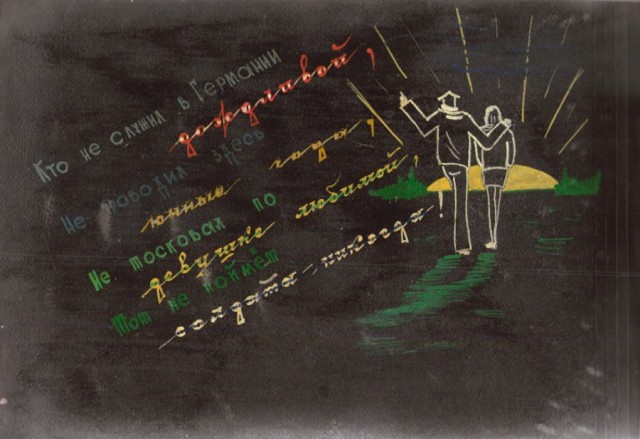 Кто не служил в Германии
дождливой,
Не проводил здесь
юные года,
Не тосковал по
девушке любимой,
Тот не поймёт
солдата, никогда!